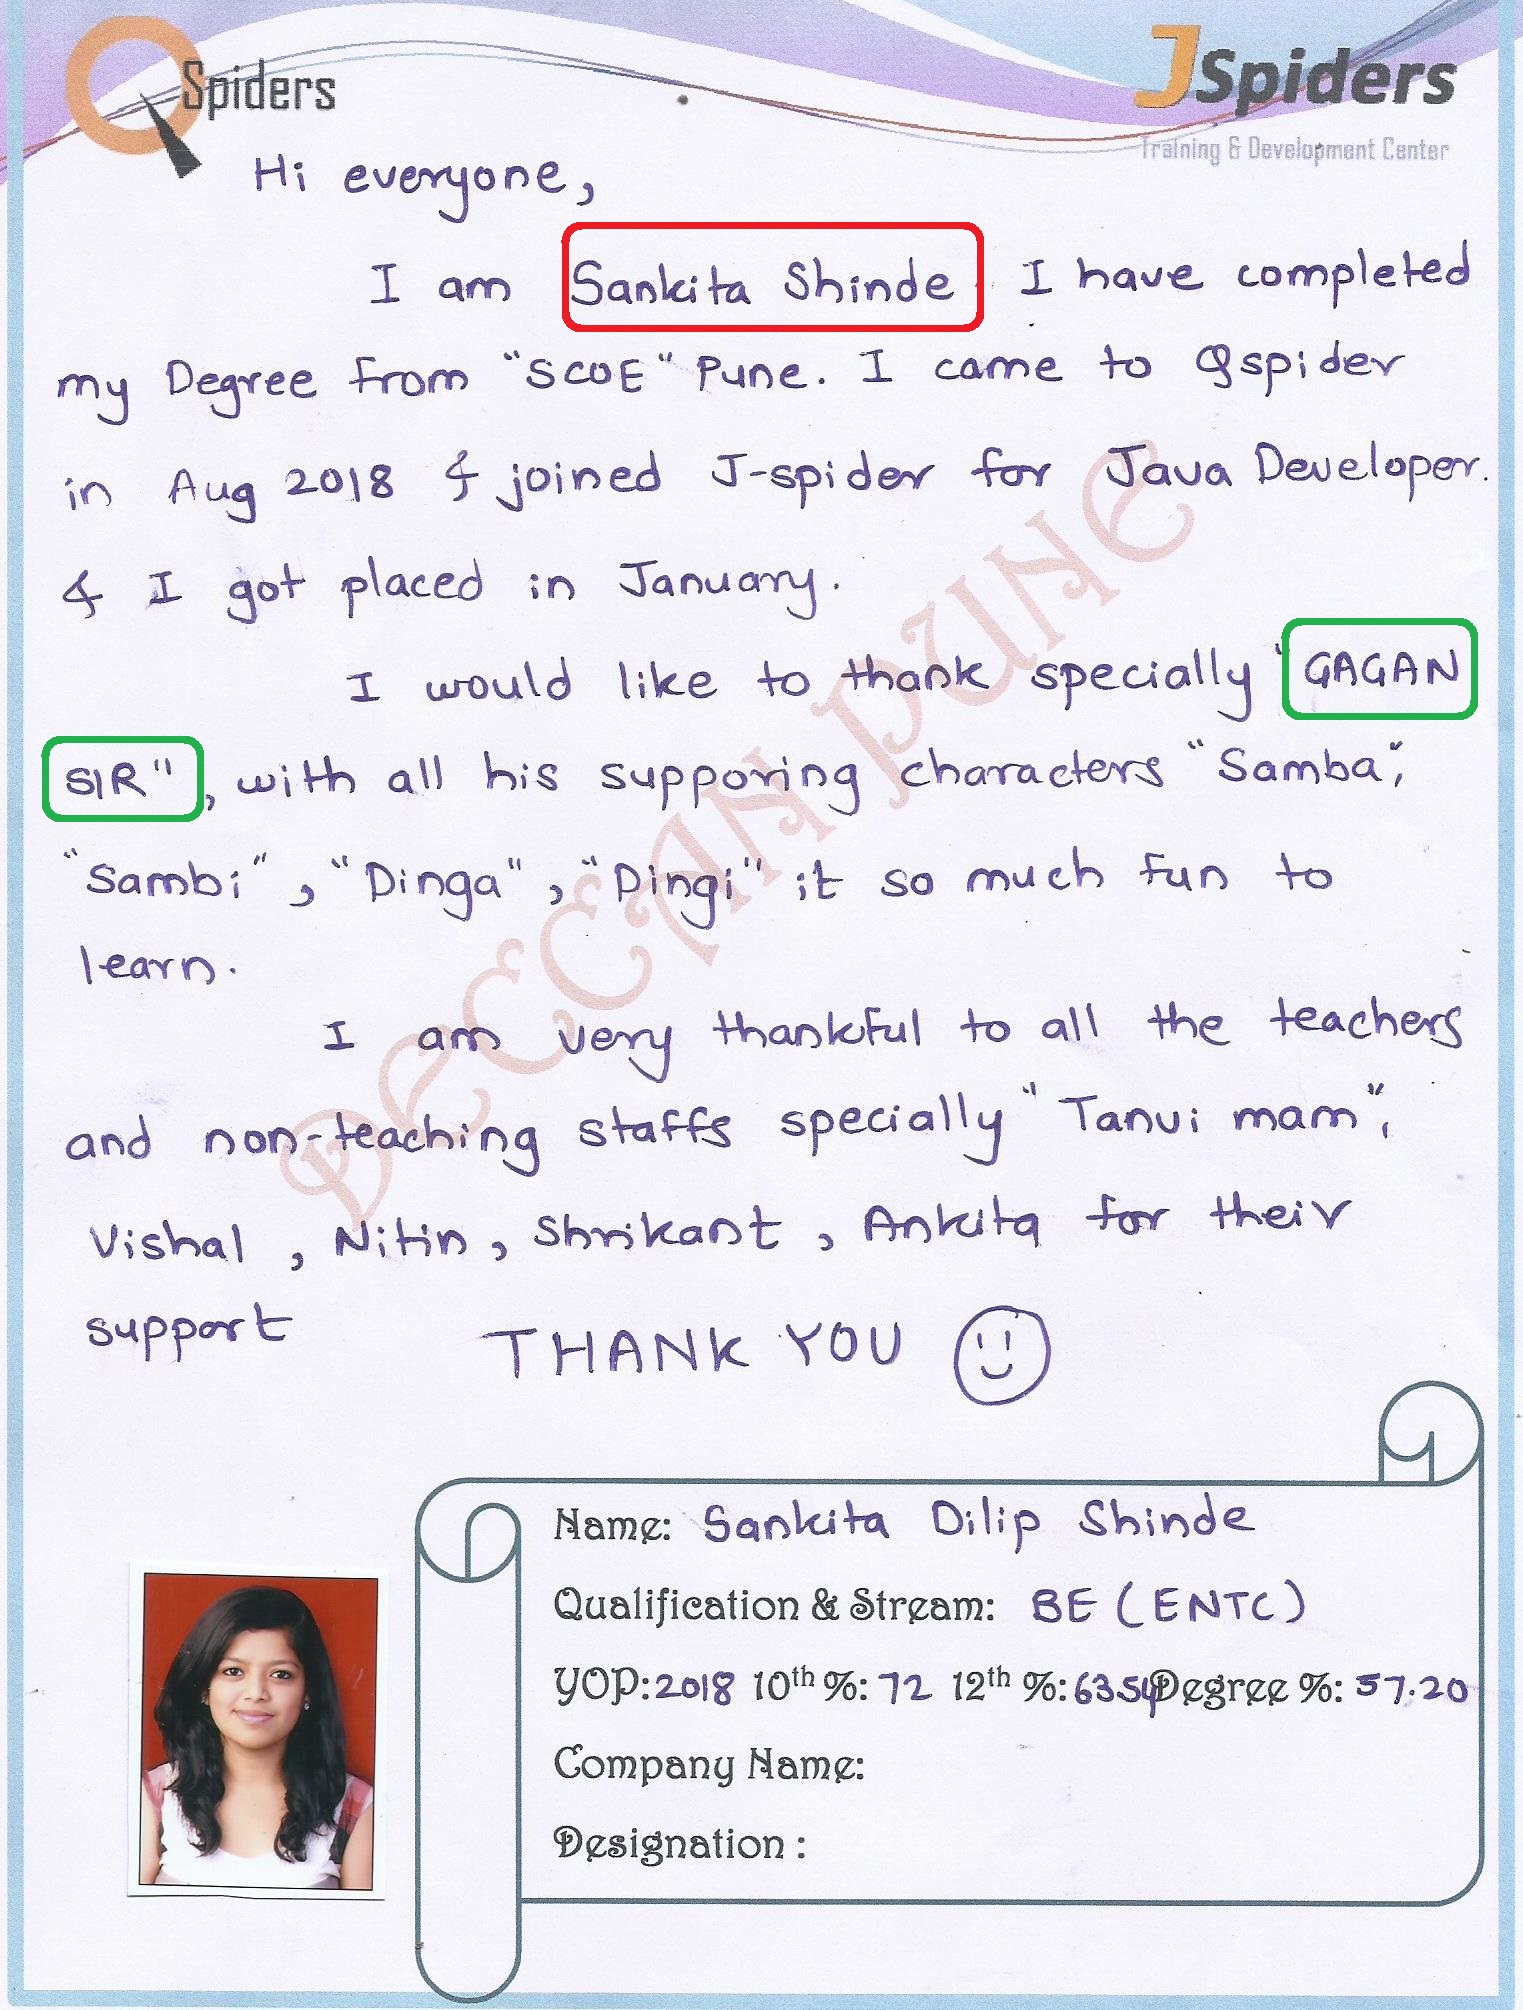 QSpiders
JSpiders
Training & Development Center
Hi everyone,
I am Sankita Shinde. I have completed
my Degree from "SCOE" Pune. I came to Qspider
in Aug 2018 & joined J-spider for Java Developer.
& I got placed in January.
I would like to thank specially "GAGAN
SIR", with all his supporing characters "Samba",
"Sambi", "Dinga", "Dingi" it so much fun to
learn.
I am very thankful to all the teachers
and non-teaching staffs specially "Tanvi mam",
Vishal, Nitin, Shrikant, Ankita for their
support
THANK YOU
DECCAN PUNE
Name: Sankita Dilip Shinde
Qualification & Stream: BE (ENTC)
YOP: 2018 10th %: 72 12th %: 63.54 Degree %: 57.20
Company Name:
Designation :